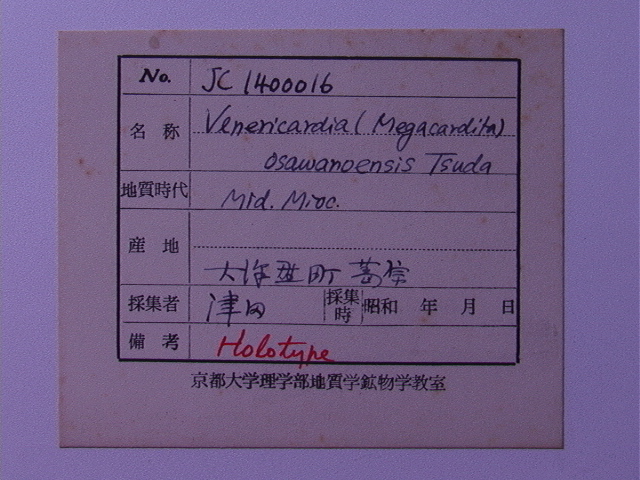 No. JC 1400016
名称 Venericardia (Megacardita)
osawanoensis Tsuda
地質時代 Mid. Mioc.
産地
大沢野町葛原
採集者 津田 採集時 昭和 年 月 日
備考 Holotype
京都大学理学部地質学鉱物学教室